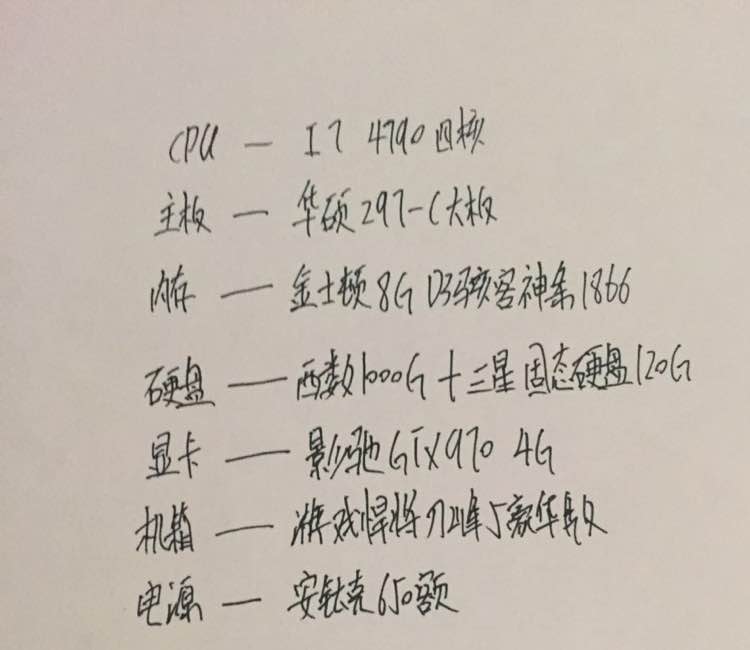 CPU — I7 4790四核
主板 — 华硕Z97-C大板
内存 — 金士顿8G D3骇客神条1866
硬盘 — 西数1000G+三星固态硬盘120G
显卡 — 影驰GTX970 4G
机箱 — 游戏悍将刀锋5豪华版
电源 — 安钛克650额